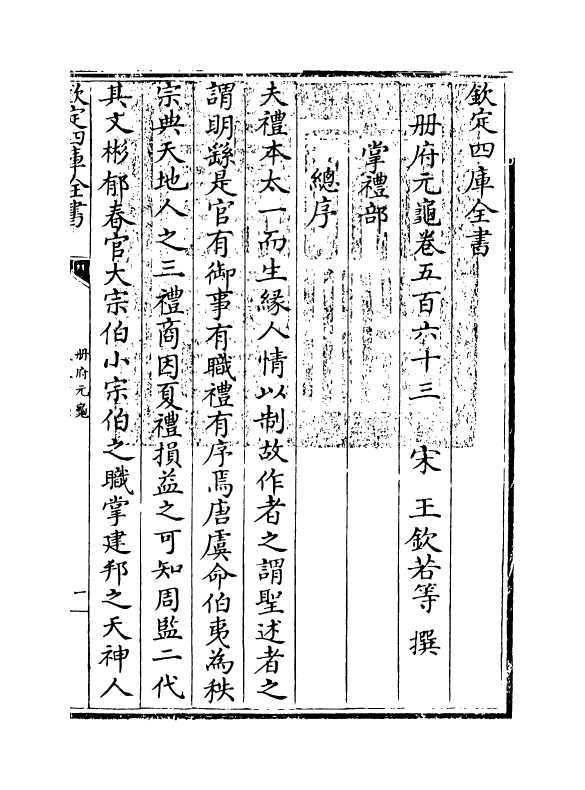 欽定四庫全書
冊府元龜卷五百六十三　宋　王欽若等　撰
掌禮部
總序
夫禮本太一而生緣人情以制故作者之謂聖述者之
謂明繇是官有御事有職禮有序焉唐虞命伯夷為秩
宗典天地人之三禮商因夏禮損益之可知周監二代
其文彬郁春官大宗伯小宗伯之職掌建邦之天神人
欽定四庫全書
冊府元龜
一